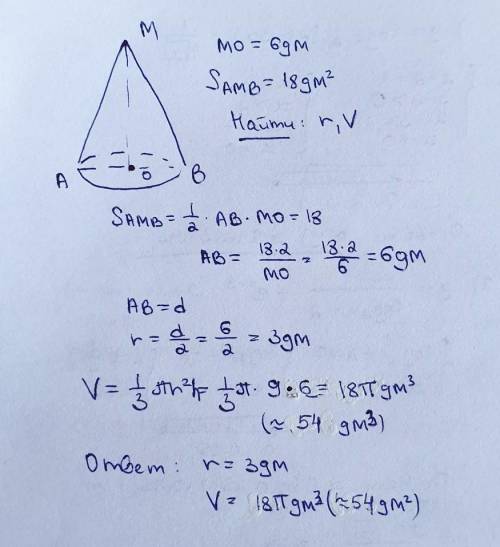 M
MO = 6дм
SАМВ = 18дм²
Найти: r, V
A
O
B
SАМВ = 1/2 · AB · MO = 18
AB = 18·2/MO = 18·2/6 = 6дм
AB = d
r = d/2 = 6/2 = 3дм
V = 1/3 πr²h = 1/3 π · 9 · 6 = 18π дм³
(≈ 54 дм³)
Ответ: r = 3дм
V = 18π дм³ (≈ 54 дм²)